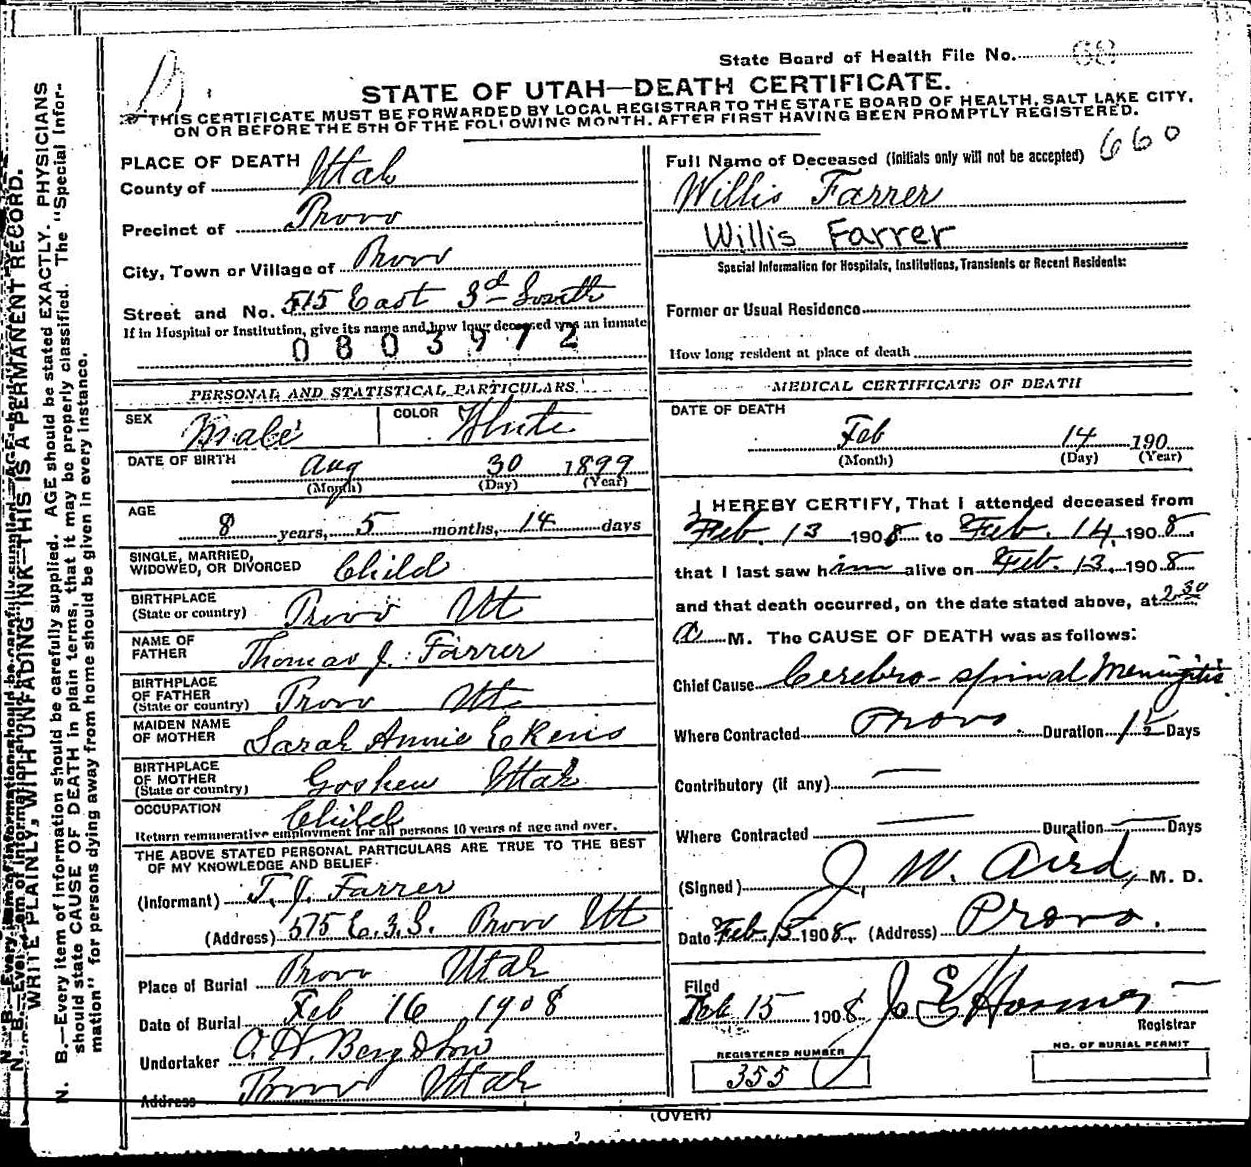 State Board of Health File No. 68
STATE OF UTAH—DEATH CERTIFICATE.
THIS CERTIFICATE MUST BE FORWARDED BY LOCAL REGISTRAR TO THE STATE BOARD OF HEALTH, SALT LAKE CITY,
ON OR BEFORE THE 5TH OF THE FOLLOWING MONTH, AFTER FIRST HAVING BEEN PROMPTLY REGISTERED.
WRITE PLAINLY, WITH UNFADING INK—THIS IS A PERMANENT RECORD.
N. B.—Every item of information should be carefully supplied. AGE should be stated EXACTLY. PHYSICIANS
should state CAUSE OF DEATH in plain terms, that it may be properly classified. The "Special Infor-
mation" for persons dying away from home should be given in every instance.
PLACE OF DEATH
County of Utah
Precinct of Provo
City, Town or Village of Provo
Street and No. 515 East 3d South
If in Hospital or Institution, give its name and how long deceased was an inmate
0803972
PERSONAL AND STATISTICAL PARTICULARS.
SEX Male COLOR White
DATE OF BIRTH Aug 30 1899
(Month) (Day) (Year)
AGE 8 years, 5 months, 14 days
SINGLE, MARRIED,
WIDOWED, OR DIVORCED Child
BIRTHPLACE
(State or country) Provo Ut
NAME OF
FATHER Thomas J. Farrer
BIRTHPLACE
OF FATHER
(State or country) Provo Ut
MAIDEN NAME
OF MOTHER Sarah Annie Ekens
BIRTHPLACE
OF MOTHER
(State or country) Goshen Utah
OCCUPATION Child
Return remunerative employment for all persons 10 years of age and over.
THE ABOVE STATED PERSONAL PARTICULARS ARE TRUE TO THE BEST
OF MY KNOWLEDGE AND BELIEF.
(Informant) T. J. Farrer
(Address) 575 E. 3. S. Provo Ut
Place of Burial Provo Utah
Date of Burial Feb 16 1908
Undertaker O. H. Berg & Son
Address Provo Utah
Full Name of Deceased (Initials only will not be accepted) 660
Willis Farrer
Willis Farrer
Special Information for Hospitals, Institutions, Transients or Recent Residents:
Former or Usual Residence
How long resident at place of death
MEDICAL CERTIFICATE OF DEATH
DATE OF DEATH
Feb 14 190
(Month) (Day) (Year)
I HEREBY CERTIFY, That I attended deceased from
Feb. 13 1908 to Feb. 14, 1908.
that I last saw him alive on Feb. 13, 1908
and that death occurred, on the date stated above, at 2.30
a M. The CAUSE OF DEATH was as follows:
Chief Cause Cerebro-spinal Meningitis
Where Contracted Provo. Duration 1 1/2 Days
Contributory (if any) —
Where Contracted — Duration — Days
(Signed) J. W. Aird, M. D.
Date Feb. 15 1908. (Address) Provo.
Filed
Feb 15 1908 Registrar
REGISTERED NUMBER
355
NO. OF BURIAL PERMIT
(OVER)